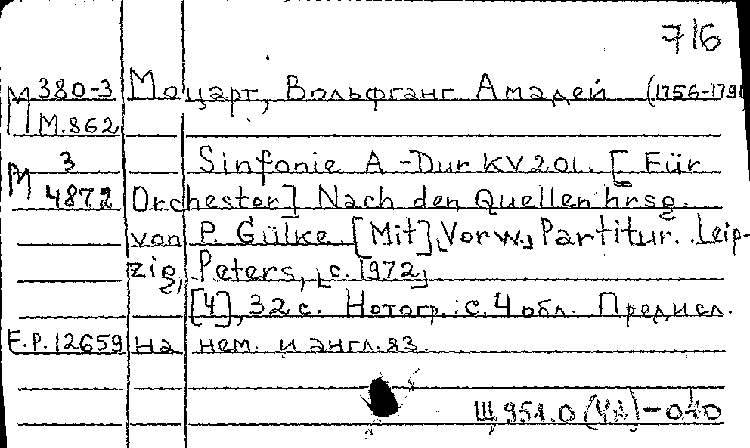 716
М 380-3 Моцарт, Вольфганг Амадей (1756-1791
М.862
М 3 Sinfonie A-Dur KV 201. [Für
4872 Orchester] Nach den Quellen hrsg.
von P. Gülke [Mit] Vorw. Partitur. Leip-
zig, Peters, [c. 1972]
[4], 32 с. Нотогр. : с. 4 обл. Предисл.
E.P. 12659 на нем. и англ. яз.
Щ 951.0 (4А) - 040